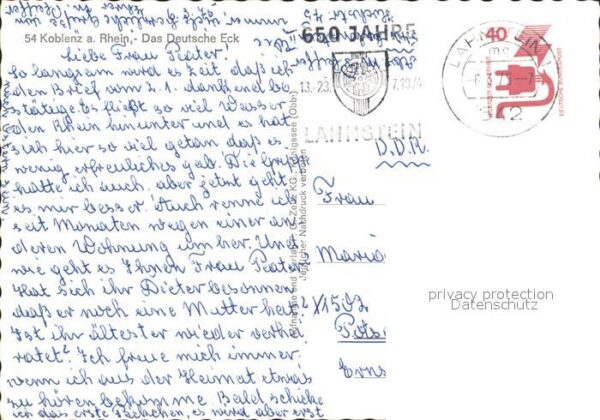 54 Koblenz a. Rhein, - Das Deutsche Eck
Liebe Frau Peater!
So langsam wird es Zeit daß ich
den Brief vom 2.1. dankend be
stätige. Es fließt so viel Wasser
den Rhein hinunter und es hat
sich hier so viel getan daß es
wenig erfreuliches gab. Die Grippe
hatte ich auch, aber jetzt geht
es mir besser. Auch renne ich
seit Monaten wegen einer an
deren Wohnung umher. Und
wie geht es Ihnen Frau Peater?
Hat sich ihr Dieter besonnen
daß er noch eine Mutter hat?
Ist ihr ältester wieder verhei
ratet? Ich freue mich immer
wenn ich aus der Heimat etwas
zu hören bekomme. Bald schicke
ich das erste Päckchen, es wird aber erst
650 JAHRE
13.-23. 7.1974
LAHNSTEIN
LAHNSTEIN
40
DEUTSCHE BUNDESPOST
D.D.R.
Frau
Maria
X1502
Pots
Erns
Königssee (Obb)
Nachdruck verboten
privacy protection
Datenschutz